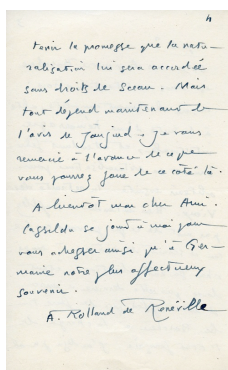 4
tenir la promesse que la natu-
ralisation lui sera accordée
sans droits de Sceau. Mais
tout dépend maintenant de
l'avis de . Je vous
remercie à l'avance de ce que
vous pourrez faire de ce côté là.
A bientôt mon cher Ami.
Cassilda se joint à moi pour
vous adresser ainsi qu'à Ger-
maine notre plus affectueux
souvenir.
A. Rolland de Renéville